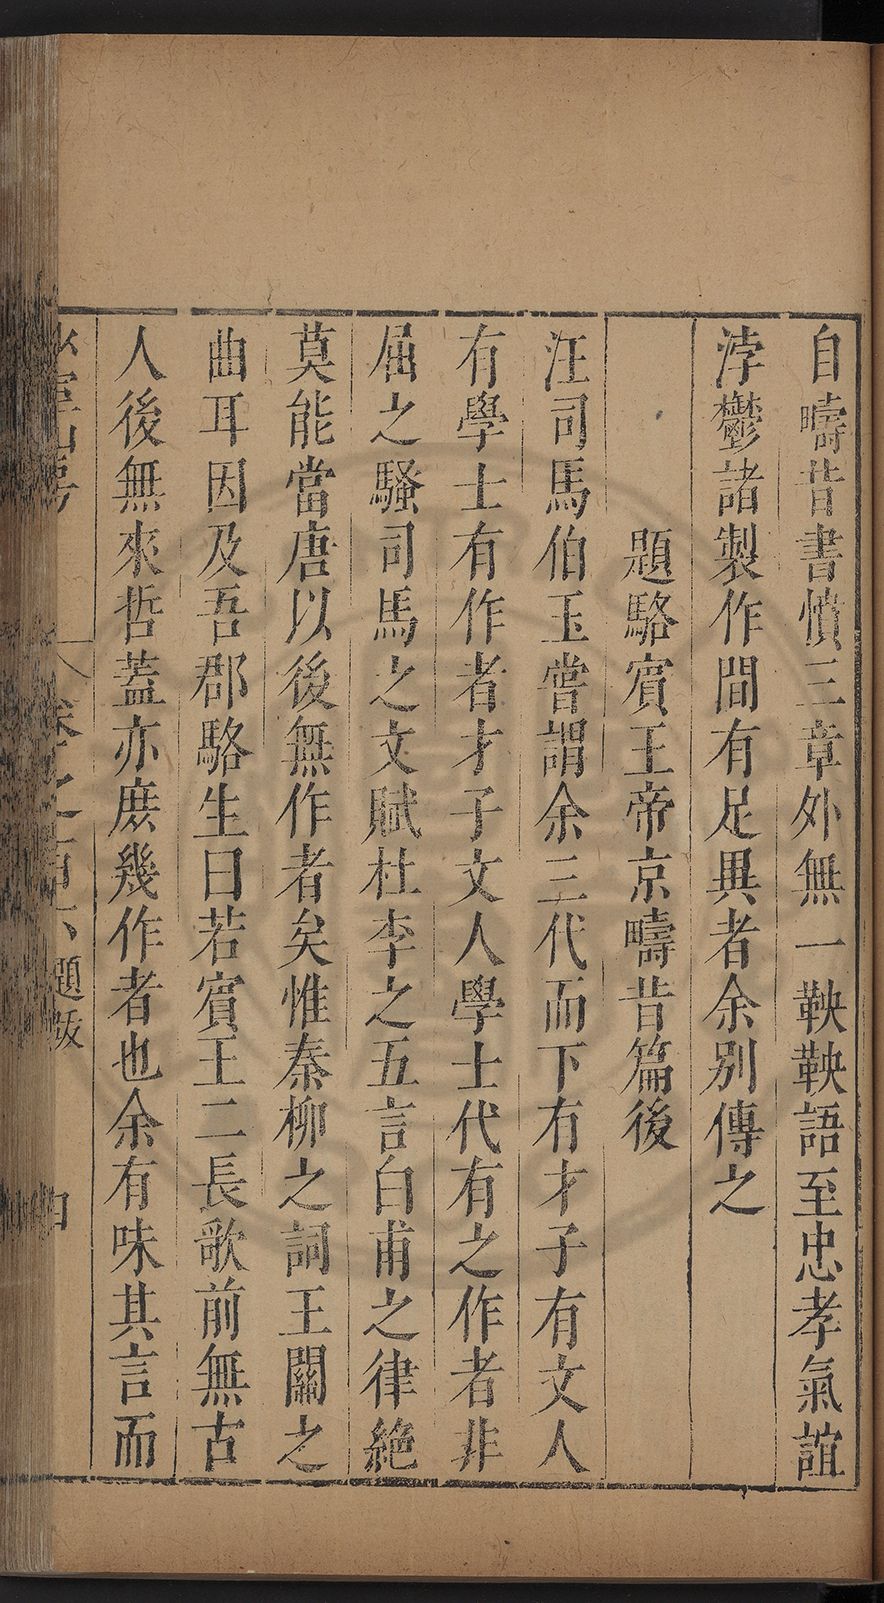 自疇昔書憤三章外無一鞅鞅語至忠孝氣誼
浡鬱諸製作間有足異者余別傳之
題駱賓王帝京疇昔篇後
汪司馬伯玉嘗謂余三代而下有才子有文人
有學士有作者才子文人學士代有之作者非
屈之騷司馬之文賦杜李之五言白甫之律絕
莫能當唐以後無作者矣惟秦柳之詞王關之
曲耳因及吾郡駱生曰若賓王二長歌前無古
人後無來哲蓋亦庶幾作者也余有味其言而
卷之百六 題跋